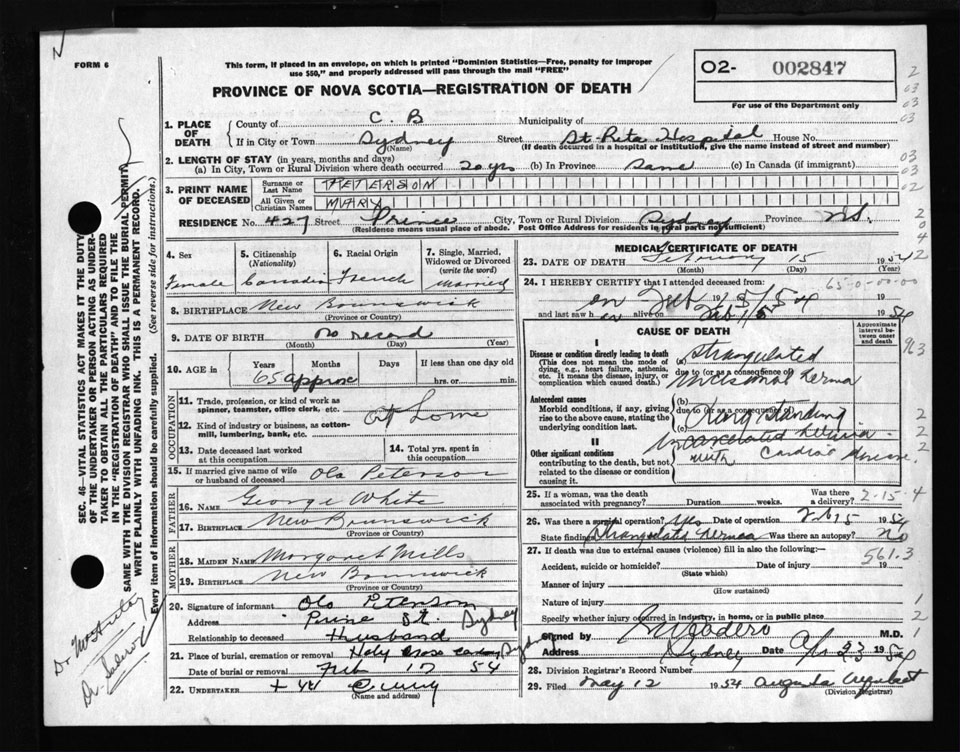 N
FORM 6
This form, if placed in an envelope, on which is printed "Dominion Statistics—Free, penalty for improper
use $50," and properly addressed will pass through the mail "FREE"
PROVINCE OF NOVA SCOTIA—REGISTRATION OF DEATH
02- 002847
For use of the Department only
SEC. 46—VITAL STATISTICS ACT MAKES IT THE DUTY
OF THE UNDERTAKER OR PERSON ACTING AS UNDER-
TAKER TO OBTAIN ALL THE PARTICULARS REQUIRED
IN THE "REGISTRATION OF DEATH" AND TO FILE THE
SAME WITH THE DIVISION REGISTRAR WHO SHALL ISSUE THE BURIAL PERMIT.
WRITE PLAINLY WITH UNFADING INK. THIS IS A PERMANENT RECORD.
Every item of information should be carefully supplied. (See reverse side for instructions.)
1. PLACE OF DEATH
County of C. B Municipality of
If in City or Town Sydney Street St-Rita Hospital House No.
(Name) (If death occurred in a hospital or institution, give the name instead of street and number)
2. LENGTH OF STAY (in years, months and days)
(a) In City, Town or Rural Division where death occurred 20 yrs (b) In Province Same (c) In Canada (if immigrant)
3. PRINT NAME OF DECEASED
Surname or Last Name PETERSON
All Given or Christian Names MARY
RESIDENCE No. 427 Street Prince City, Town or Rural Division Sydney Province N.S.
(Residence means usual place of abode. Post Office Address for residents in rural parts not sufficient)
4. Sex 5. Citizenship (Nationality) 6. Racial Origin 7. Single, Married, Widowed or Divorced (write the word)
Female Canadian French Married
8. BIRTHPLACE New Brunswick
(Province or Country)
9. DATE OF BIRTH no record
(Month) (Day) (Year)
10. AGE in Years Months Days If less than one day old
65 approx hrs. or min.
OCCUPATION
11. Trade, profession, or kind of work as
spinner, teamster, office clerk, etc. at Home
12. Kind of industry or business, as cotton-
mill, lumbering, bank, etc.
13. Date deceased last worked at this occupation
14. Total yrs. spent in this occupation
15. If married give name of wife or husband of deceased Ola Peterson
FATHER
16. NAME George White
17. BIRTHPLACE New Brunswick
(Province or Country)
MOTHER
18. MAIDEN NAME Margaret Mills
19. BIRTHPLACE New Brunswick
(Province or Country)
20. Signature of informant Ola Peterson
Address Prince St. Sydney
Relationship to deceased Husband
21. Place of burial, cremation or removal Holy Cross
Date of burial or removal Feb 17 54
22. UNDERTAKER
(Name and address)
MEDICAL CERTIFICATE OF DEATH
23. DATE OF DEATH February 15 1954
(Month) (Day) (Year)
24. I HEREBY CERTIFY that I attended deceased from: 65-0-00-00
on Feb 15/54 19
and last saw her alive on Feb 15 1954
CAUSE OF DEATH
Approximate interval between onset and death
I
Disease or condition directly leading to death
(This does not mean the mode of dying, e.g., heart failure, asthenia, etc. It means the disease, injury, or complication which caused death.)
(a) Strangulated
due to (or as a consequence of)
incisional hernia
Antecedent causes
Morbid conditions, if any, giving rise to the above cause, stating the underlying condition last.
(b)
due to (or as a consequence of)
(c) Long standing
II
Other significant conditions
contributing to the death, but not related to the disease or condition causing it.
incarcerated hernia
with Cardiac disease
25. If a woman, was the death associated with pregnancy? Duration weeks. Was there a delivery? 2-15-4
26. Was there a surgical operation? yes Date of operation Feb 15 1954
State findings Strangulated hernia Was there an autopsy? no
27. If death was due to external causes (violence) fill in also the following:—
561.3
Accident, suicide or homicide? Date of injury 19
(State which)
Manner of injury
(How sustained)
Nature of injury
Specify whether injury occurred in industry, in home, or in public place
Signed by M.D.
Address Sydney Date 23 1954
28. Division Registrar's Record Number
29. Filed May 12 1954 Augusta
(Division Registrar)